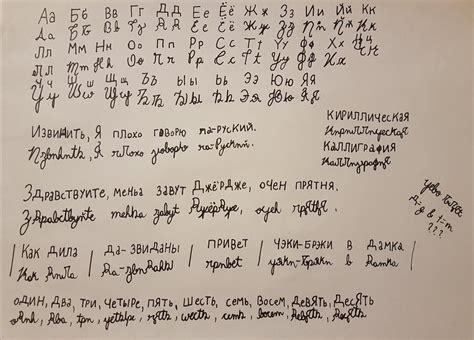 Аа Бб Вв Гг Дд Ее Ёё Жж Зз Ии Йй Кк
Лл Мм Нн Оо Пп Рр Сс Тт Уу Фф Хх Цц
Чч Шш Щщ Ъъ Ыы Ьь Ээ Юю Яя
Извинить, Я плохо говорю па-руский.
Извинить, Я плохо говорю па-Руский.
Кириллическая
Кириллическая
Каллиграфия
Каллиграфия
Здравствуите, меньа завут Джёрдже, очен прятня.
Здравствуите менньа завут Джёрдже, очен прятня
Как дила | Да-звиданьı | Привет | Чэки-брэки в Дамка
Как дила Да-звиданы привет чэки-брэки в Дамка
один, два, три, четыре, пять, шесть, семь, восем, девять, десять
один, два, три, четыре, пять, шесть, семь, восем, девять, десять
???